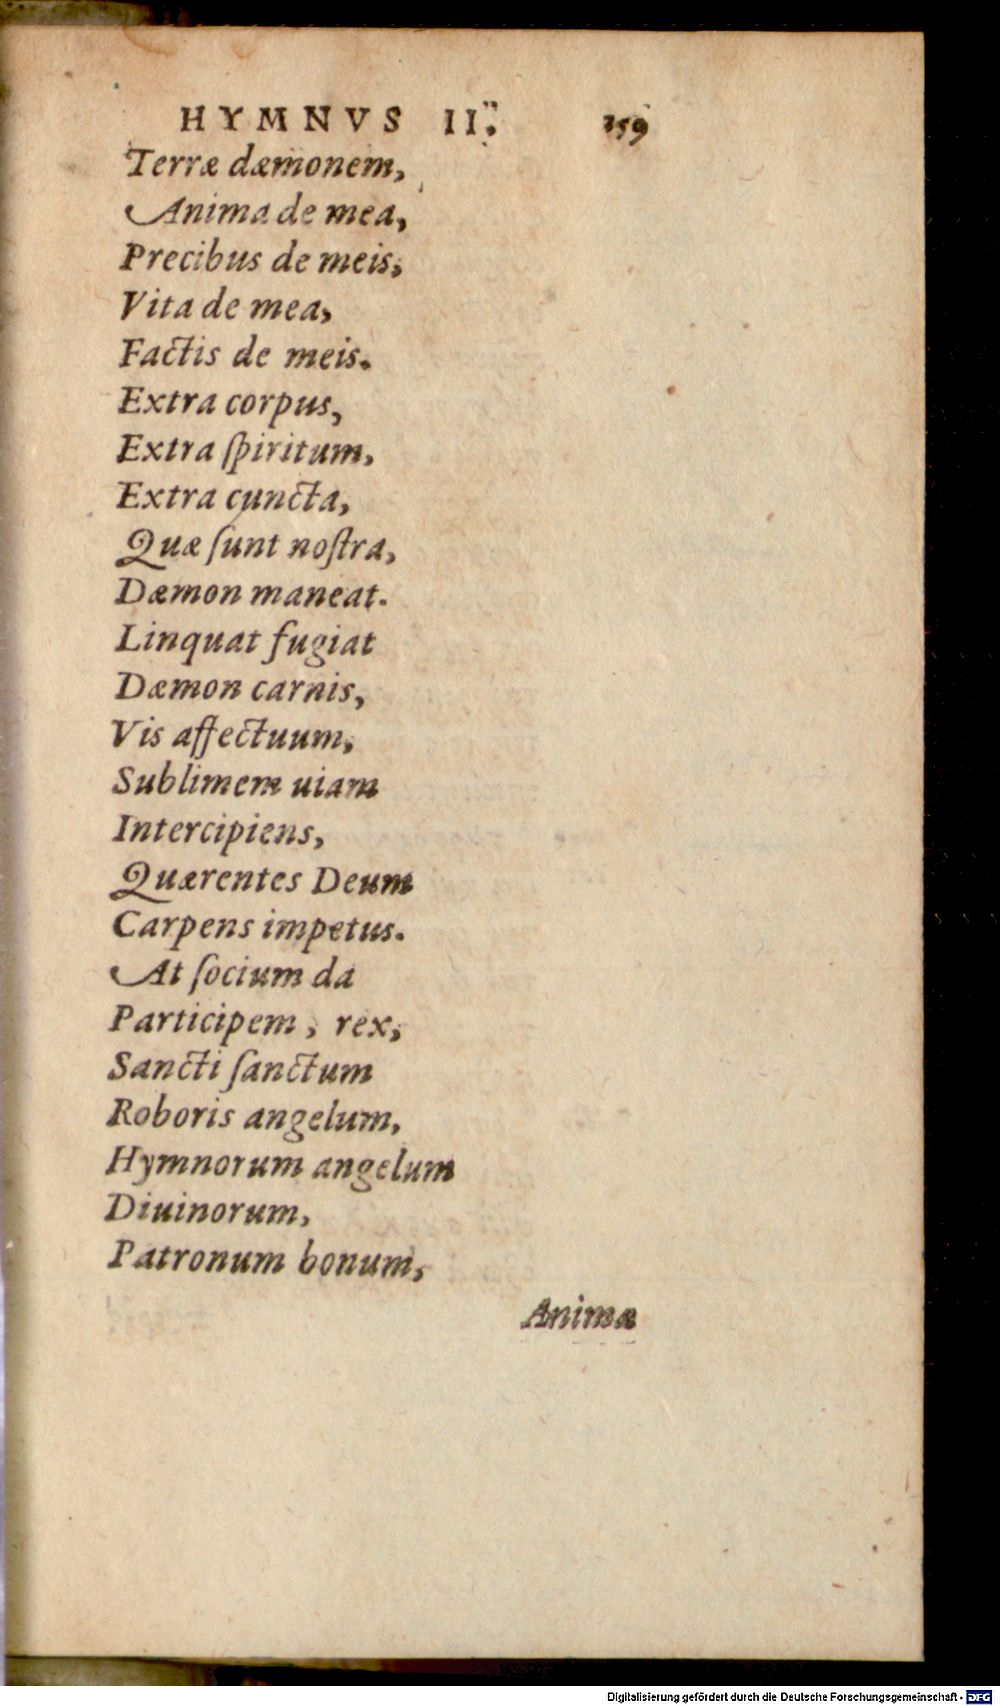 HYMNVS II. 159
Terræ dæmonem,
Anima de mea,
Precibus de meis,
Vita de mea,
Factis de meis.
Extra corpus,
Extra ſpiritum,
Extra cuncta,
Quæ ſunt noſtra,
Dæmon maneat.
Linquat fugiat
Dæmon carnis,
Vis affectuum,
Sublimem uiam
Intercipiens,
Quærentes Deum
Carpens impetus.
At ſocium da
Participem, rex,
Sancti ſanctum
Roboris angelum,
Hymnorum angelum
Diuinorum,
Patronum bonum,
Animæ
Digitalisierung gefördert durch die Deutsche Forschungsgemeinschaft - DFG